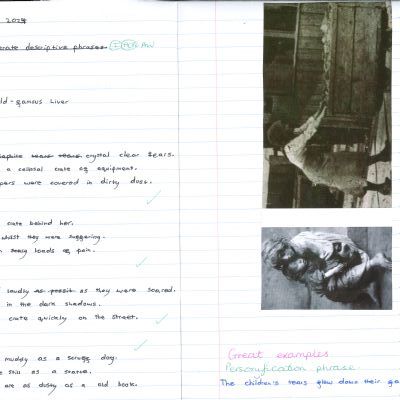 2024
descriptive phrases
crystal clear tears.
a colossal crate of equipment.
were covered in dirty dust.
crate behind her.
whilst they were suffering.
loads of pain.
loudly as they were scared.
in the dark shadows.
crate quickly on the street.
muddy as a scruffy dog.
still as a statue.
are as dusty as a old book.
Great examples
Personyfication phrase
The children's tears flow down their